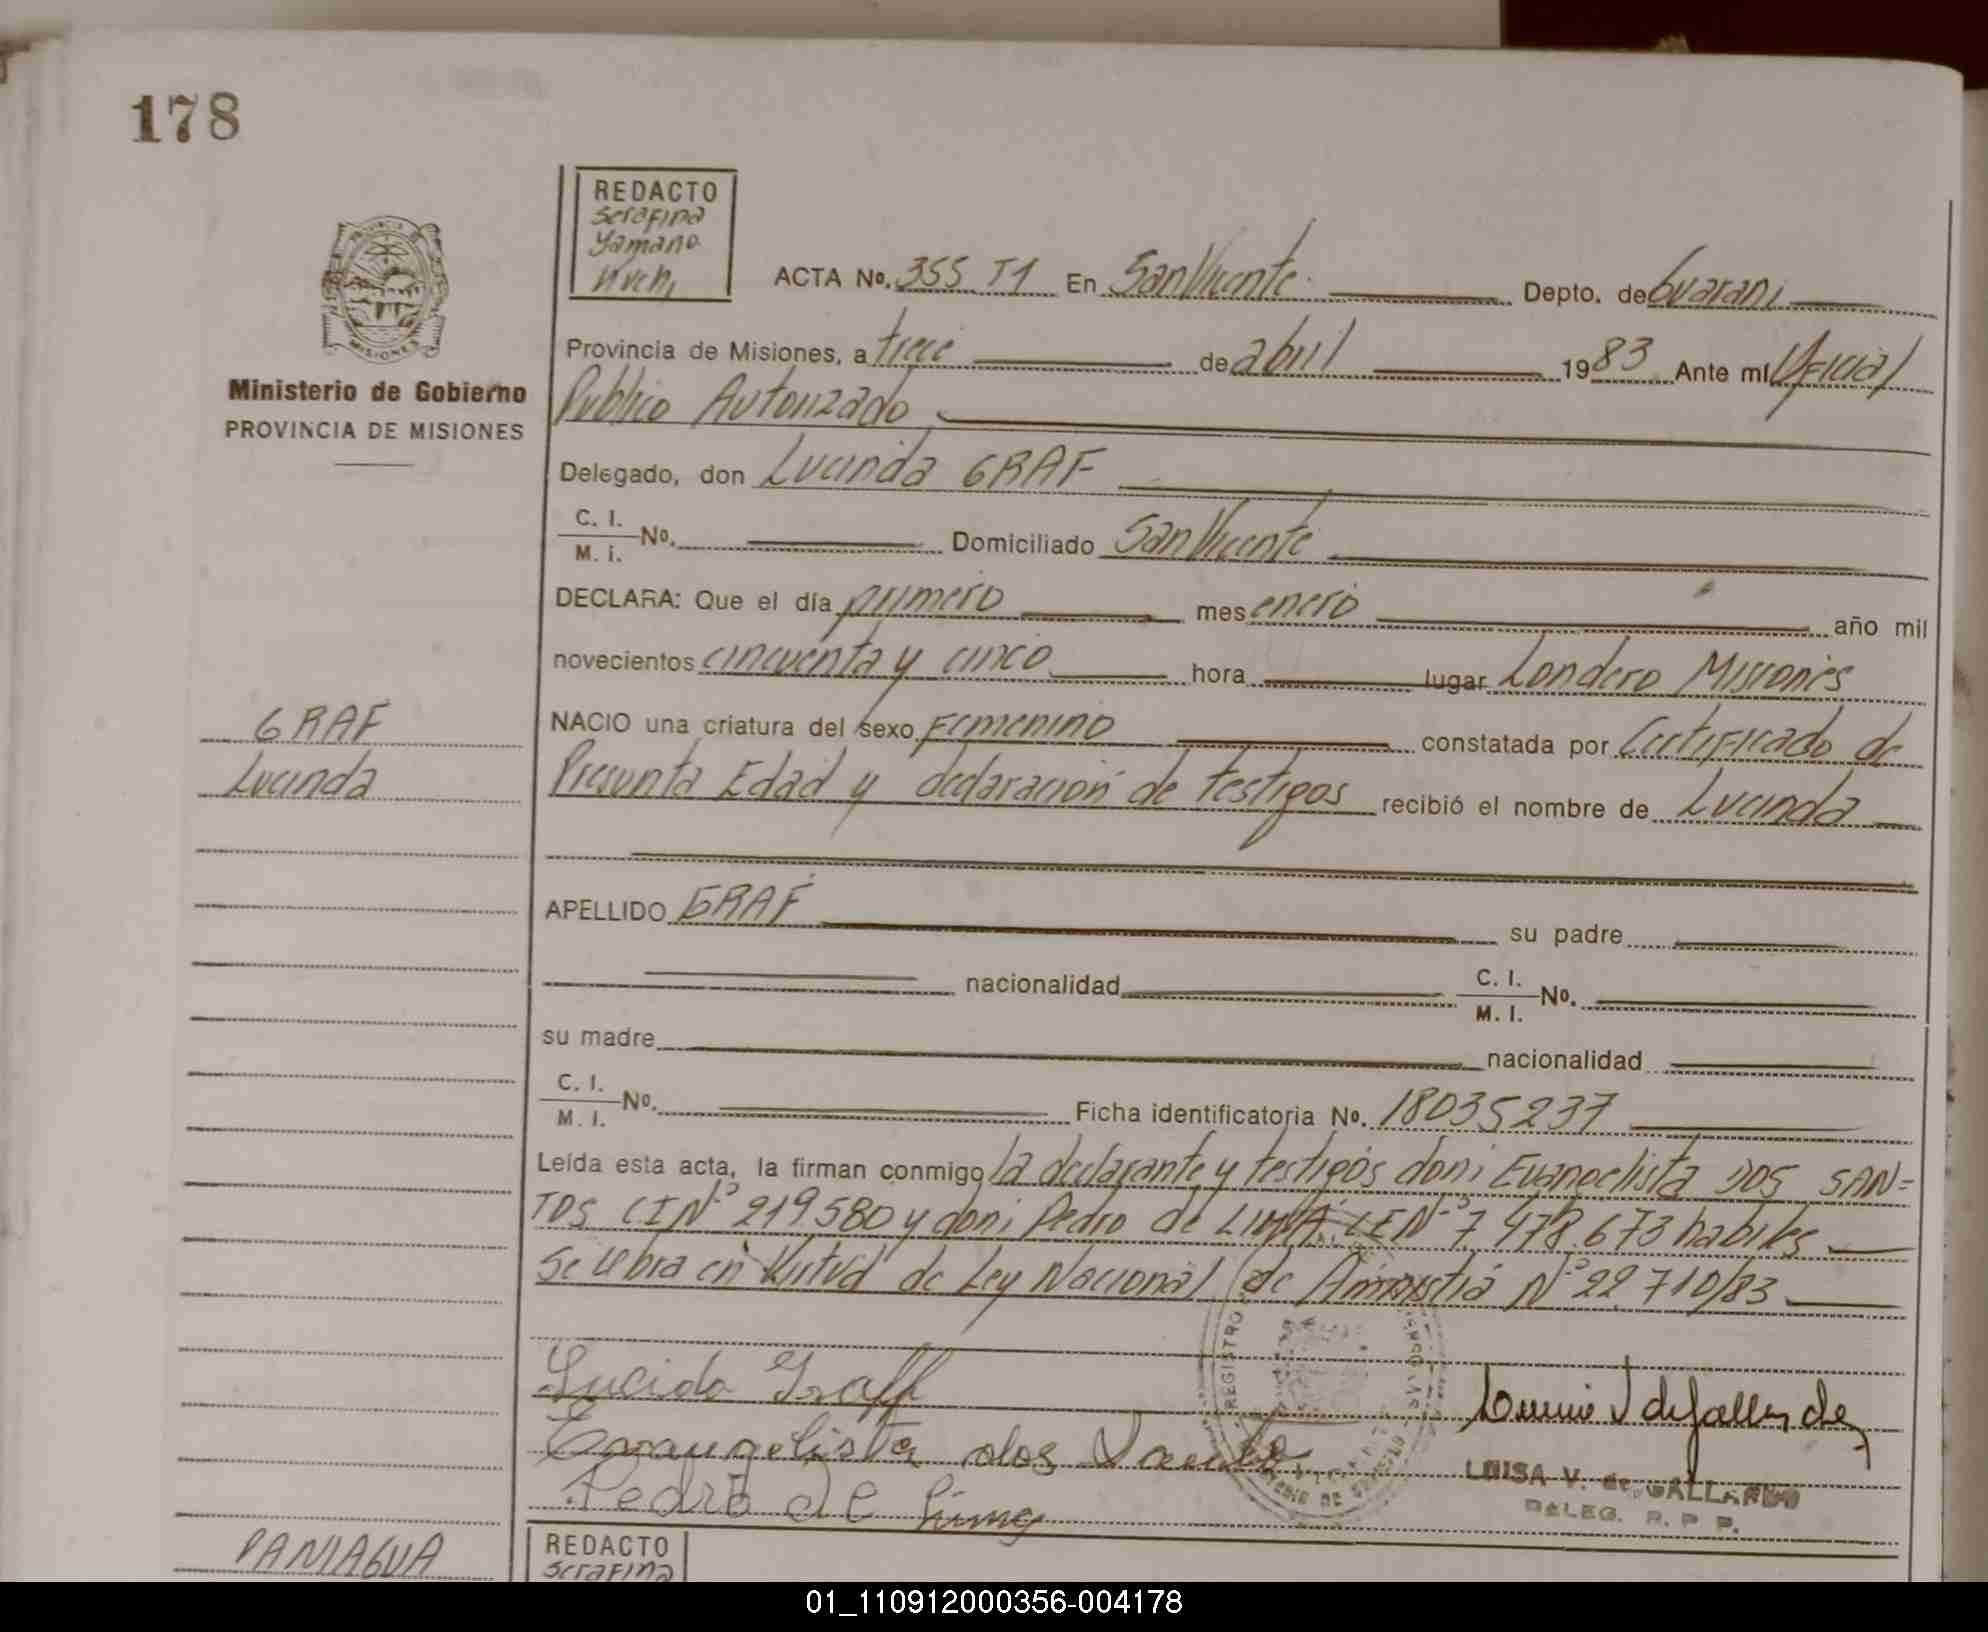 178
REDACTO
Serafina
Yamano
MISIONES
Ministerio de Gobierno
PROVINCIA DE MISIONES
ACTA No. 355 T1 En San Vicente Depto. de Guarani
Provincia de Misiones, a trece de abril 1983 Ante mi Oficial
Publico Autorizado
Delegado, don Lucinda GRAF
C. I. M. I. No. Domiciliado San Vicente
DECLARA: Que el día primero mes enero año mil
novecientos cincuenta y cinco hora lugar Londero Misiones
GRAF
Lucinda
NACIO una criatura del sexo Femenino constatada por Certificado de
Presunta Edad y declaración de testigos recibió el nombre de Lucinda
APELLIDO GRAF su padre
nacionalidad C. I. M. I. No.
su madre nacionalidad
C. I. M. I. No. Ficha identificatoria No. 18035237
Leída esta acta, la firman conmigo la declarante y testigos don: Evangelista DOS SAN=
TOS CI Nº 219.580 y don: Pedro de LIMA, LE Nº 7.478.673 habiles
Se labra en Virtud de Ley Nacional de Amnistia Nº 22.710/83
REGISTRO
Lucida Graff
Evangelista dos Santo
Pedro de Lima
LUISA V. de GALLARDO
DELEG. R. P. P.
PANIAGUA
REDACTO
Serafina
01_110912000356-004178